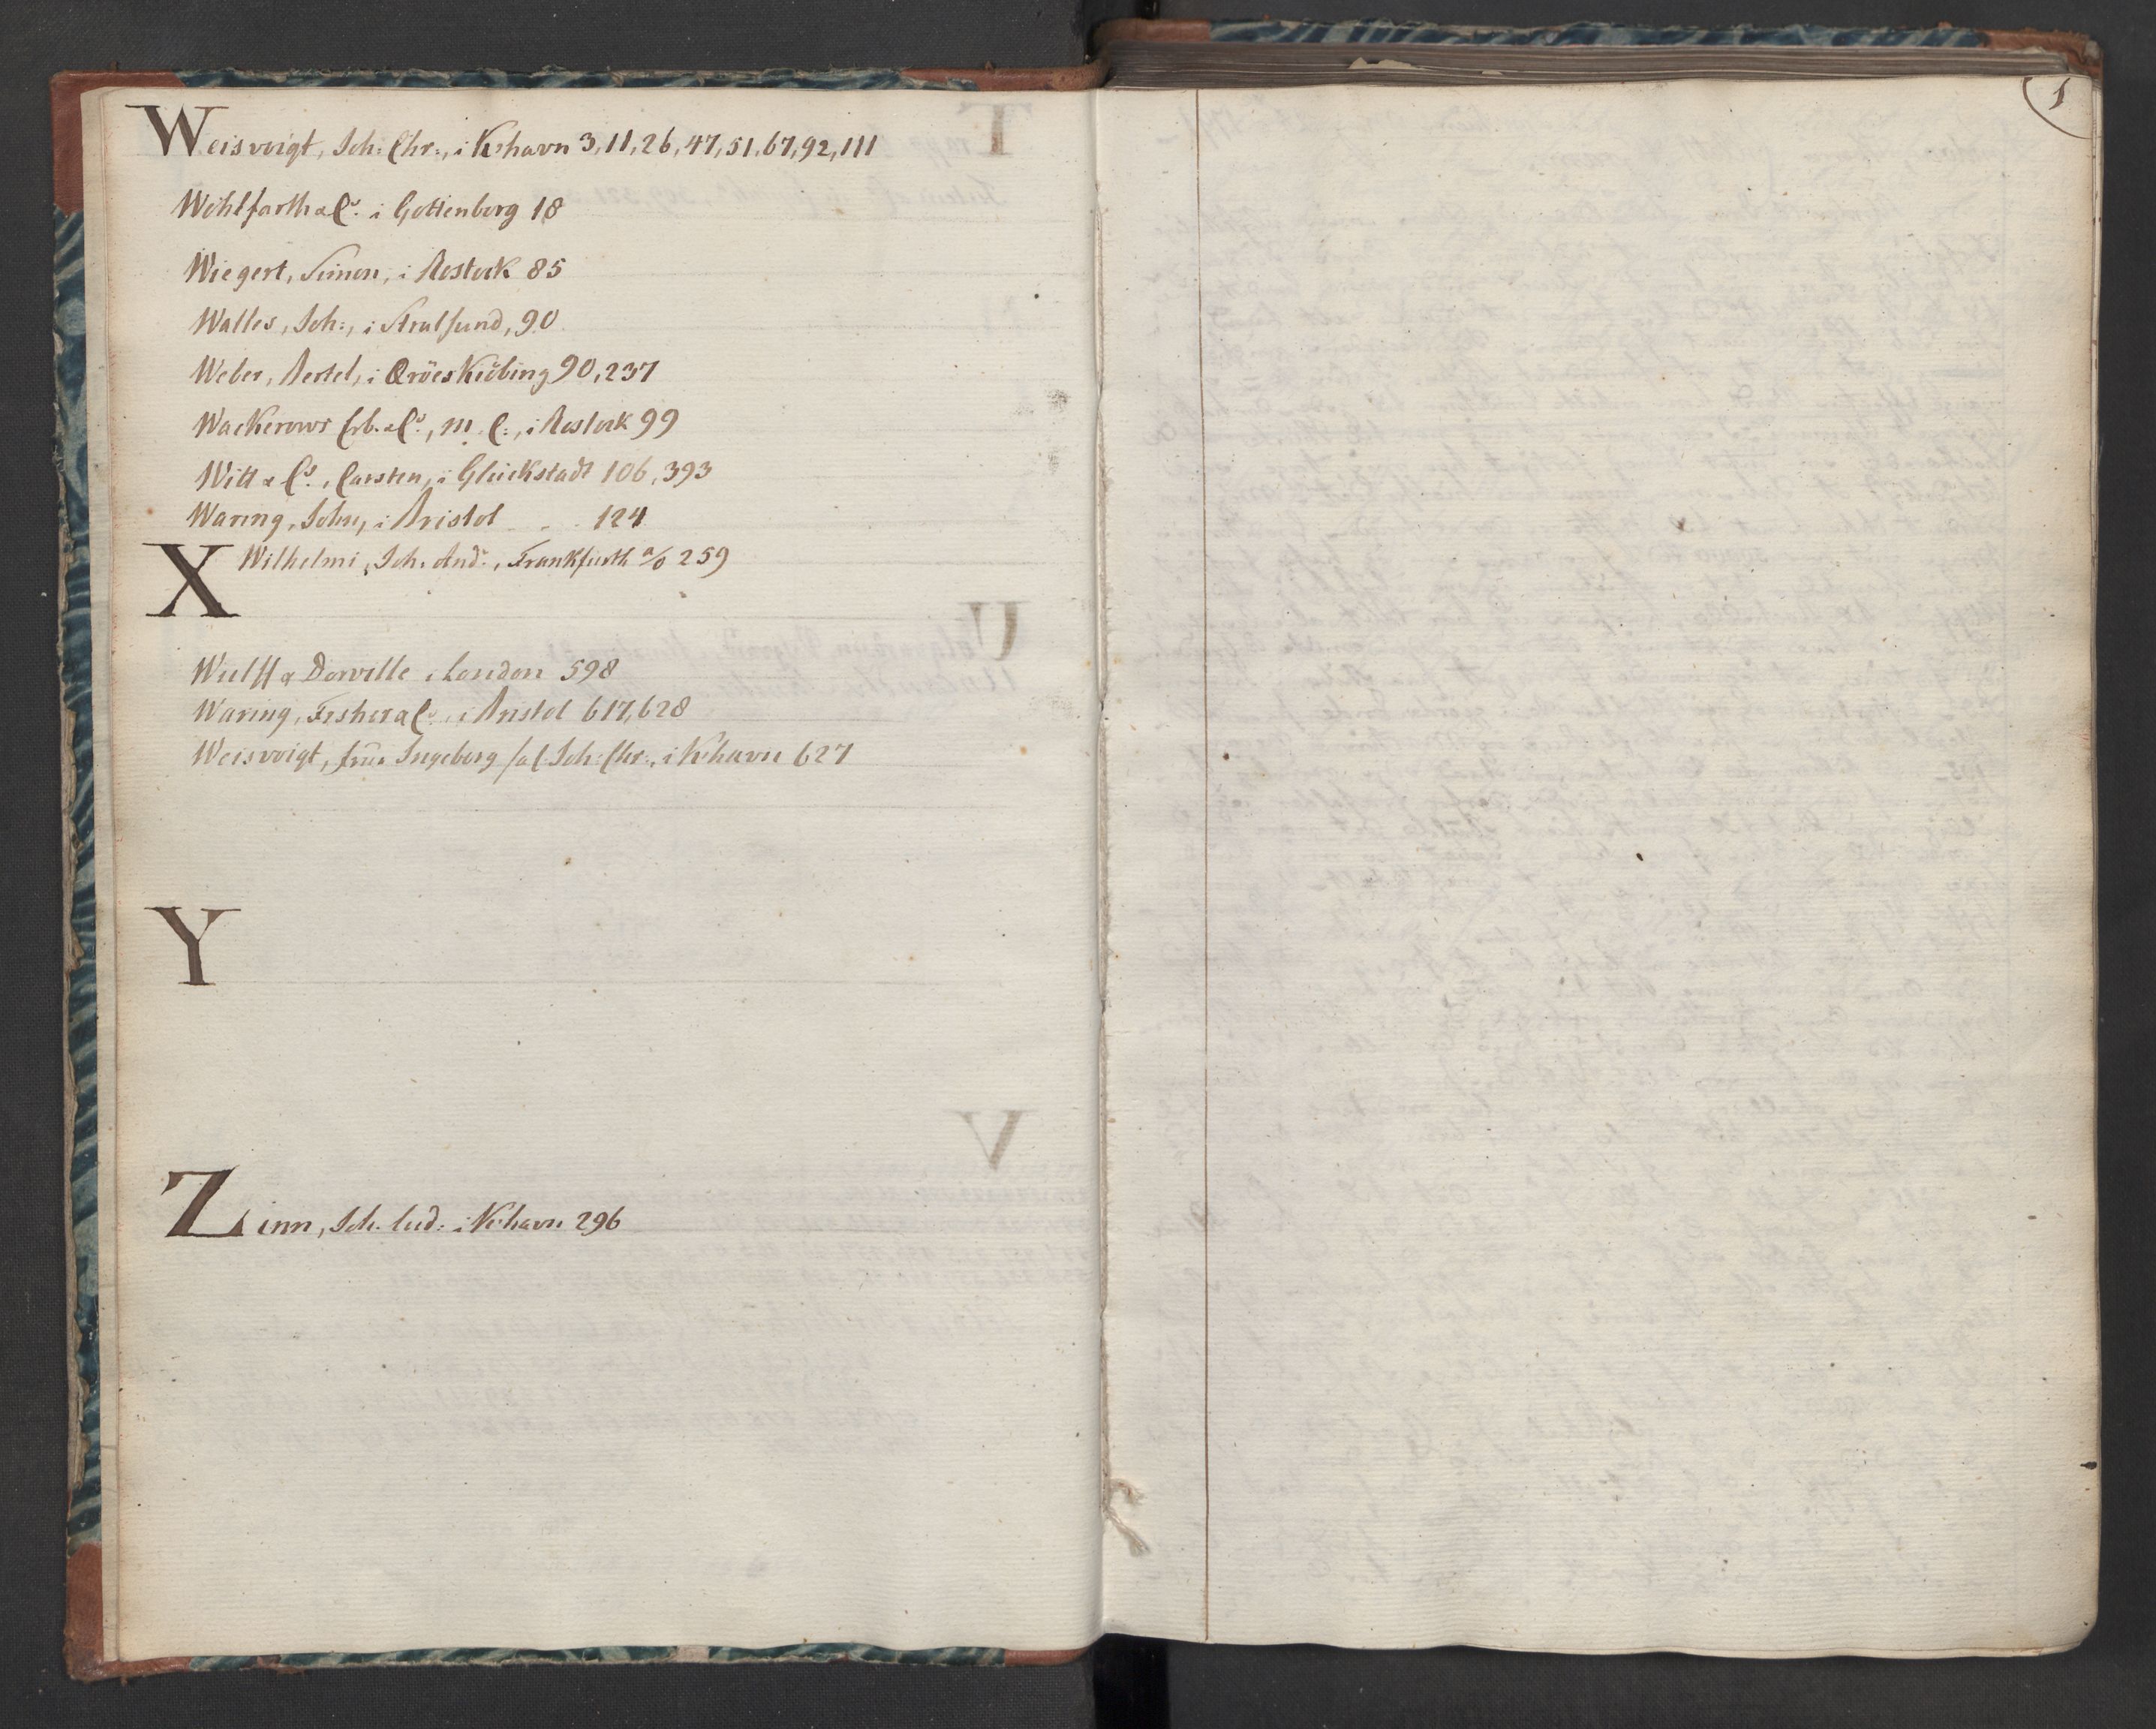 Weisvoigt, Joh: Chr:, i Kbhavn 3, 11, 26, 47, 51, 67, 92, 111
Wohlfarth & Co. i Gottenborg 18
Wiegert, Simon, i Rostock 85
Walles, Joh:, i Stralsund, 90
Weber, Bertel, i Æröeskiöbing 90, 237
Wackerows Erb. & Co., M. C:, i Rostock 99
Witt & Co., Carsten, i Glückstadt 106, 393
Waring, John, i Bristol 124
X
Wilhelmi, Joh. And:, Frankfurth a/o 259
Wulff & Dorville i London 598
Waring, Fisher & Co., i Bristol 617, 628
Weisvoigt, frue Ingeborg sal: Joh: Chr:, i Kbhavn 627
Y
Zinn, Joh. Lud: i Kbhavn 296
1